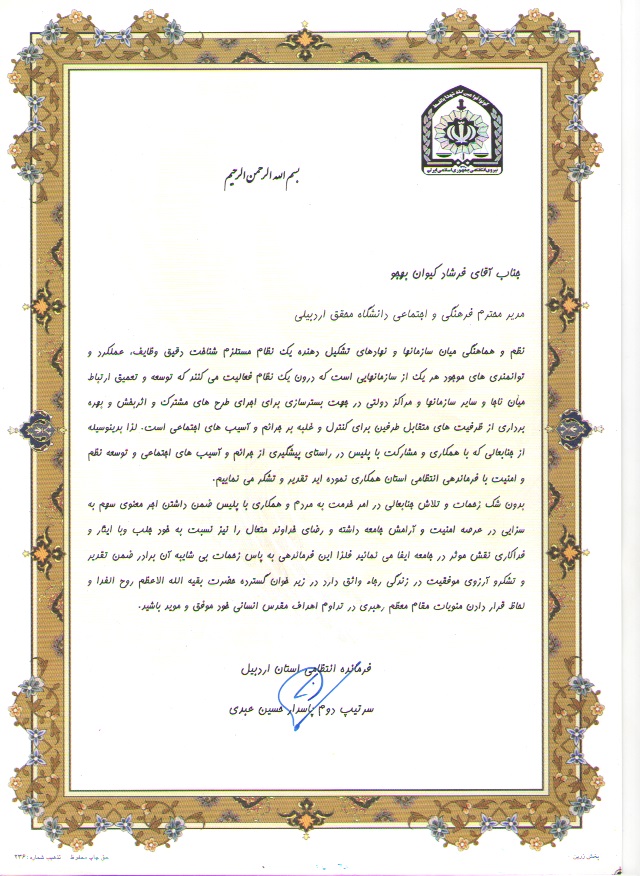 نیروی انتظامی جمهوری اسلامی ایران
بسم الله الرحمن الرحیم
جناب آقای فرشاد کیوان بهجو
مدیر محترم فرهنگی و اجتماعی دانشگاه محقق اردبیلی
نظم و هماهنگی میان سازمانها و نهادهای تشکیل دهنده یک نظام مستلزم شناخت دقیق وظایف، عملکرد و
توانمندی های موجود هر یک از سازمانهایی است که درون یک نظام فعالیت می کنند که توسعه و تعمیق ارتباط
میان ناجا و سایر سازمانها و مراکز دولتی در جهت بسترسازی برای اجرای طرح های مشترک و اثربخش و بهره
برداری از ظرفیت های متقابل طرفین برای کنترل و غلبه بر جرائم و آسیب های اجتماعی است. لذا بدینوسیله
از جنابعالی که با همکاری و مشارکت با پلیس در راستای پیشگیری از جرائم و آسیب های اجتماعی و توسعه نظم
و امنیت با فرماندهی انتظامی استان همکاری نموده اید تقدیر و تشکر می نماییم.
بدون شک زحمات و تلاش جنابعالی در امر خدمت به مردم و همکاری با پلیس ضمن داشتن اجر معنوی سهم به
سزایی در عرصه امنیت و آرامش جامعه داشته و رضای خداوند متعال را نیز نسبت به خود جلب وبا ایثار و
فداکاری نقش موثر در جامعه ایفا می نمائید فلذا این فرماندهی به پاس زحمات بی شایبه آن برادر ضمن تقدیر
و تشکرو آرزوی موفقیت در زندگی رجاء واثق دارد در زیر خوان گسترده حضرت بقیه الله الاعظم روح الفدا و
لحاظ قرار دادن منویات مقام معظم رهبری در تداوم اهداف مقدس انسانی خود موفق و موید باشید.
فرمانده انتظامی استان اردبیل
سرتیپ دوم پاسدار حسین عبدی
پخش زرین
حق چاپ محفوظ تذهیب شماره ۲۳۶۰